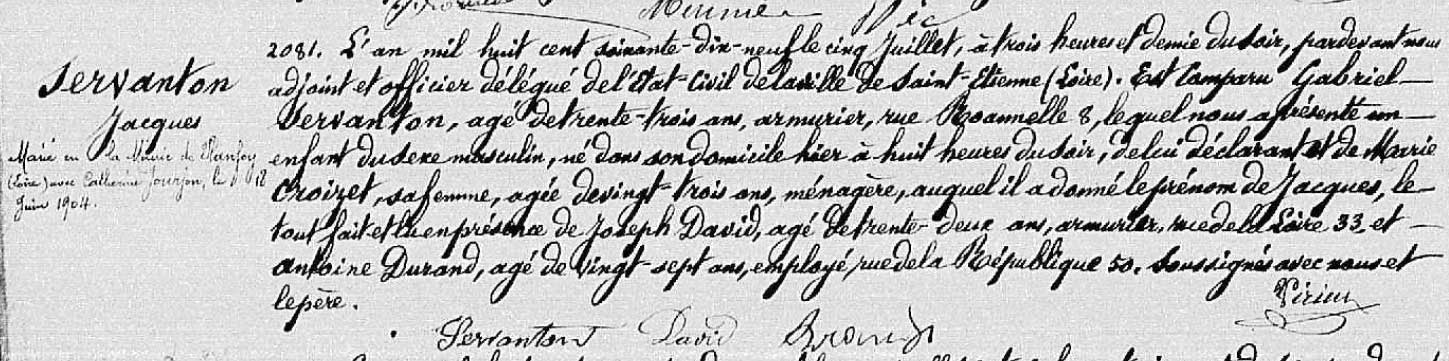 Meunier
2081. L'an mil huit cent soixante-dix-neuf le cinq Juillet, à trois heures et demie du soir, pardevant nous
adjoint et officier délégué de l'état-Civil de la ville de Saint-Etienne (Loire). Est Comparu Gabriel
Servanton, agé de trente-trois ans, armurier, rue Roannelle 8, lequel nous a présenté un
enfant du sexe masculin, né dans son domicile hier à huit heures du soir, de lui déclarant et de Marie
Croizet, sa femme, agée de vingt-trois ans, ménagère, auquel il a donné le prénom de Jacques, le
tout fait et lu en présence de Joseph David, agé de trente-deux ans, armurier, rue de la Loire 33 et
Antoine Durand, agé de vingt-sept ans, employé, rue de la République 50. Soussignés avec nous et
le père.
Servanton
Jacques
Marié en la Mairie de Planfoy
(Loire) avec Catherine Jourjon, le 18
Juin 1904.
Servanton David